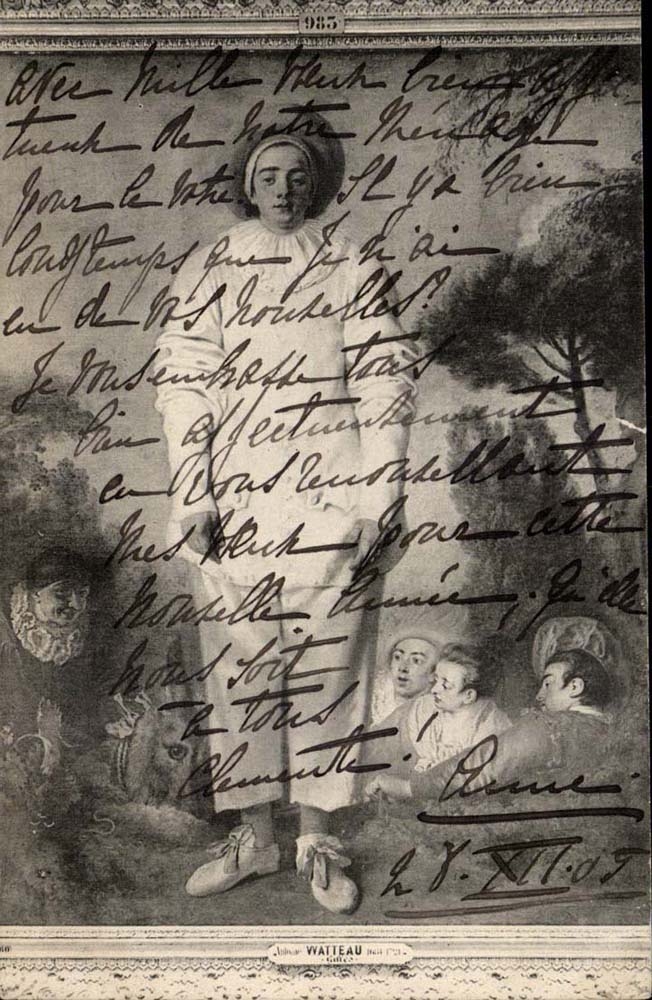 983
avec mille vœux bien affec-
tueux de notre ménage
pour le vôtre. Il y a bien
longtemps que je n'ai
eu de vos nouvelles?
Je vous embrasse tous
bien affectueusement
en vous renouvellant
mes vœux pour cette
nouvelle année, qu'elle
nous soit
à tous
clémente!
Anne.
28.XII.05
Antoine WATTEAU
Gilles